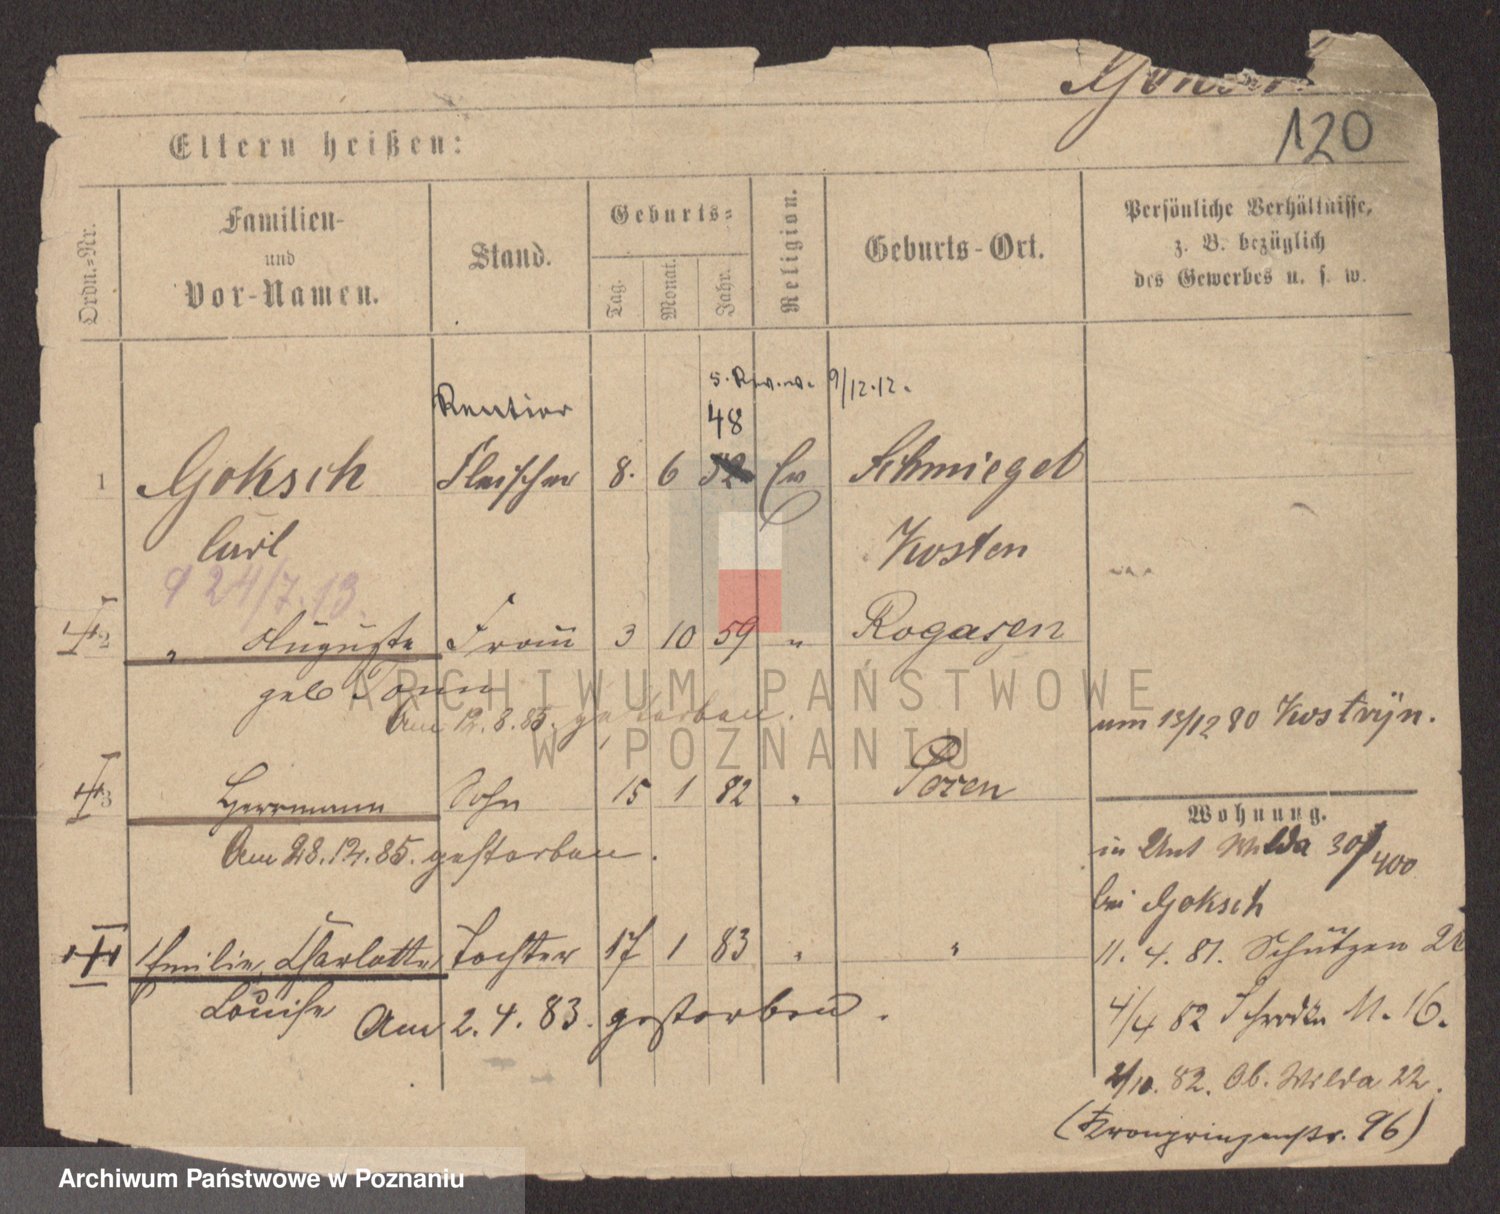 120
Eltern heißen:
Ordn.-Nr.
Familien-
und
Vor-Namen.
Stand.
Geburts-
Tag.
Monat.
Jahr.
Religion.
Geburts-Ort.
Persönliche Verhältnisse,
z. B. bezüglich
des Gewerbes u. s. w.
9/12.12.
Rentier
48
1 Goksch Fleischer 8. 6 52 Ev Schmiegel
Carl Kosten
24/7.13.
2 " Auguste Frau 3 10 59 " Rogasen
geb Tonn
Am 12.8.85. gestorben.
um 15/12 80 Kostrzyn.
3 Herrmann Sohn 15 1 82 " Posen
Am 28.12.85. gestorben.
Emilie, Charlotte Tochter 17 1 83 " "
Louise Am 2. 4. 83. gestorben.
Wohnung.
in Unt Wilda 30/400
bei Goksch
11. 4. 81. Schützen
4/4 82 M. 16.
2/10. 82. Ob. Wilda 22.
(Kronprinzenstr. 96)
ARCHIWUM PAŃSTWOWE
W POZNANIU
Archiwum Państwowe w Poznaniu